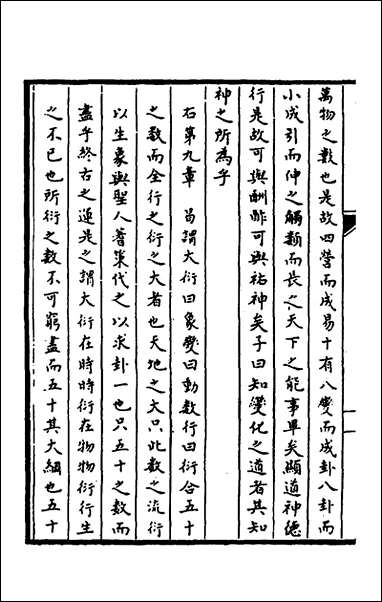 萬物之數也是故四營而成易十有八變而成卦八卦而
小成引而伸之觸類而長之天下之能事畢矣顯道神德
行是故可與酬酢可與祐神矣子曰知變化之道者其知
神之所為乎
右第九章 曷謂大衍曰象變曰動數行曰衍合五十
之數而全行之衍之大者也天地之大只此數之流衍
以生象與聖人蓍策代之以求卦一也只五十之數而
盡乎終古之運是之謂大衍在時時衍在物物衍行生
之不已也所衍之數不可窮盡而五十其大綱也五十